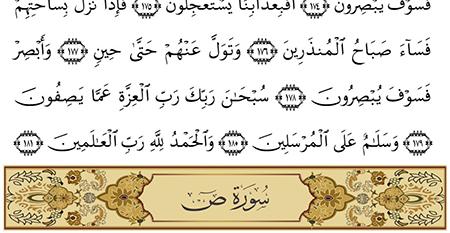 فَسَوْفَ يُبْصِرُونَ ﴿١٧٤﴾ أَفَبِعَذَابِنَا يَسْتَعْجِلُونَ ﴿١٧٥﴾ فَإِذَا نَزَلَ بِسَاحَتِهِمْ
فَسَآءَ صَبَاحُ الْمُنذَرِينَ ﴿١٧٦﴾ وَتَوَلَّ عَنْهُمْ حَتَّىٰ حِينٍ ﴿١٧٧﴾ وَأَبْصِرْ
فَسَوْفَ يُبْصِرُونَ ﴿١٧٨﴾ سُبْحَـٰنَ رَبِّكَ رَبِّ الْعِزَّةِ عَمَّا يَصِفُونَ
﴿١٧٩﴾ وَسَلَـٰمٌ عَلَى الْمُرْسَلِينَ ﴿١٨٠﴾ وَالْحَمْدُ لِلَّهِ رَبِّ الْعَـٰلَمِينَ ﴿١٨١﴾
سُورَةُ صٓ